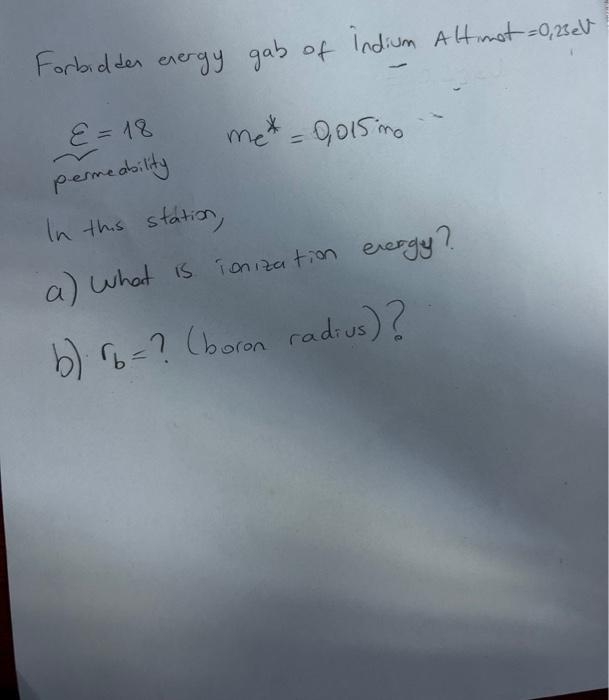 Forbidden energy gab of İndium Altimot = 0,23eV
ε = 18 me* = 0,015 mo
permeability
In this station,
a) What is ionization energy?
b) rb = ? (boron radius)?